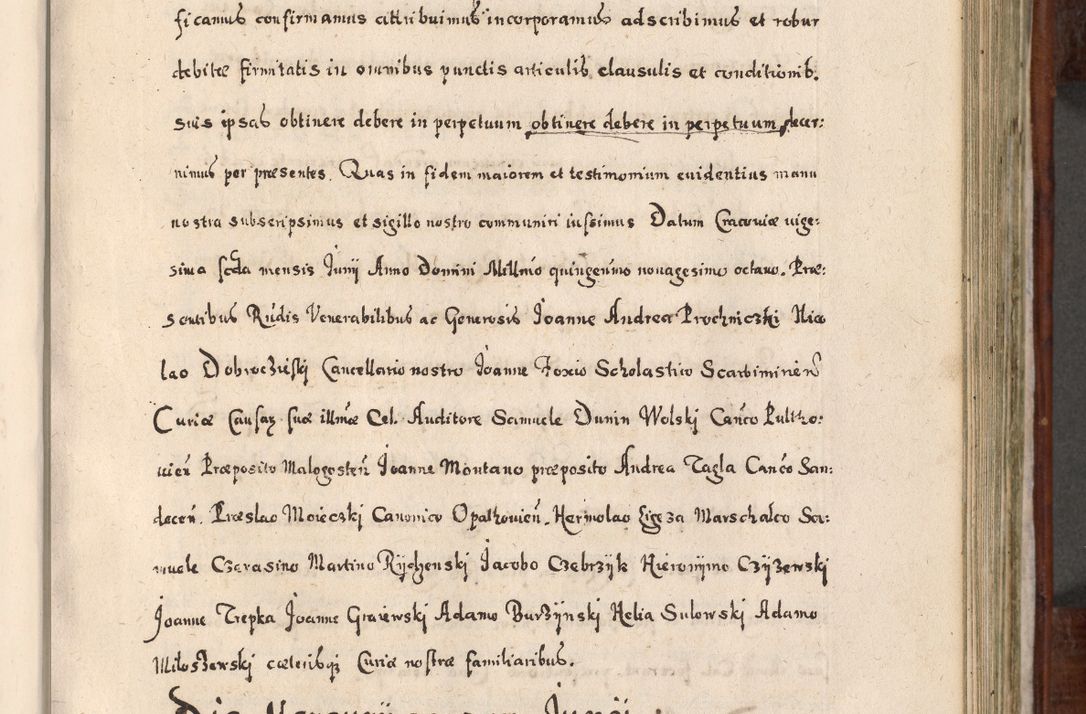 ficamus confirmamus attribuimus incorporamus adscribimus et robur
debitæ firmitatis in omnibus punctis articulis clausulis et conditionib.
suis ipsas obtinere debere in perpetuum obtinere debere in perpetuum decer:
nimus per præsentes. Quas in fidem maiorem et testimonium euidentius manu
nostra subscripsimus et sigillo nostro communiri iussimus Datum Cracoviæ uige:
sima scda mensis Junij Anno Domini Millmo quingenmo nonagesimo octavo. Præ:
sentibus Rndis Venerabilibus ac Generosis Joanne Andrea Prochniczki Nico
lao Dobrocżieski Cancellario nostro Joanne Foxio Scholastico Scarbimirien
Curiæ Causaz suæ illmæ Cel. Auditore Samuele Dunin Wolski Canco Pultho:
uien Præposito Malogosten Joanne Montano præposito Andrea Tagla Canco San:
decen. Præslao Moieczki Canonico Opathouien. Hermolao Ligęza Marschalco Sa:
muele Czarasino Martino Rychenski Jacobo Czebrzyk Hieronymo Czyżewski
Joanne Trepka Joanne Graiewski Adamo Burżynski Helia Sulowski Adamo
Miloszewski cæterisq; Curiæ nostræ familiaribus.
Die Junij